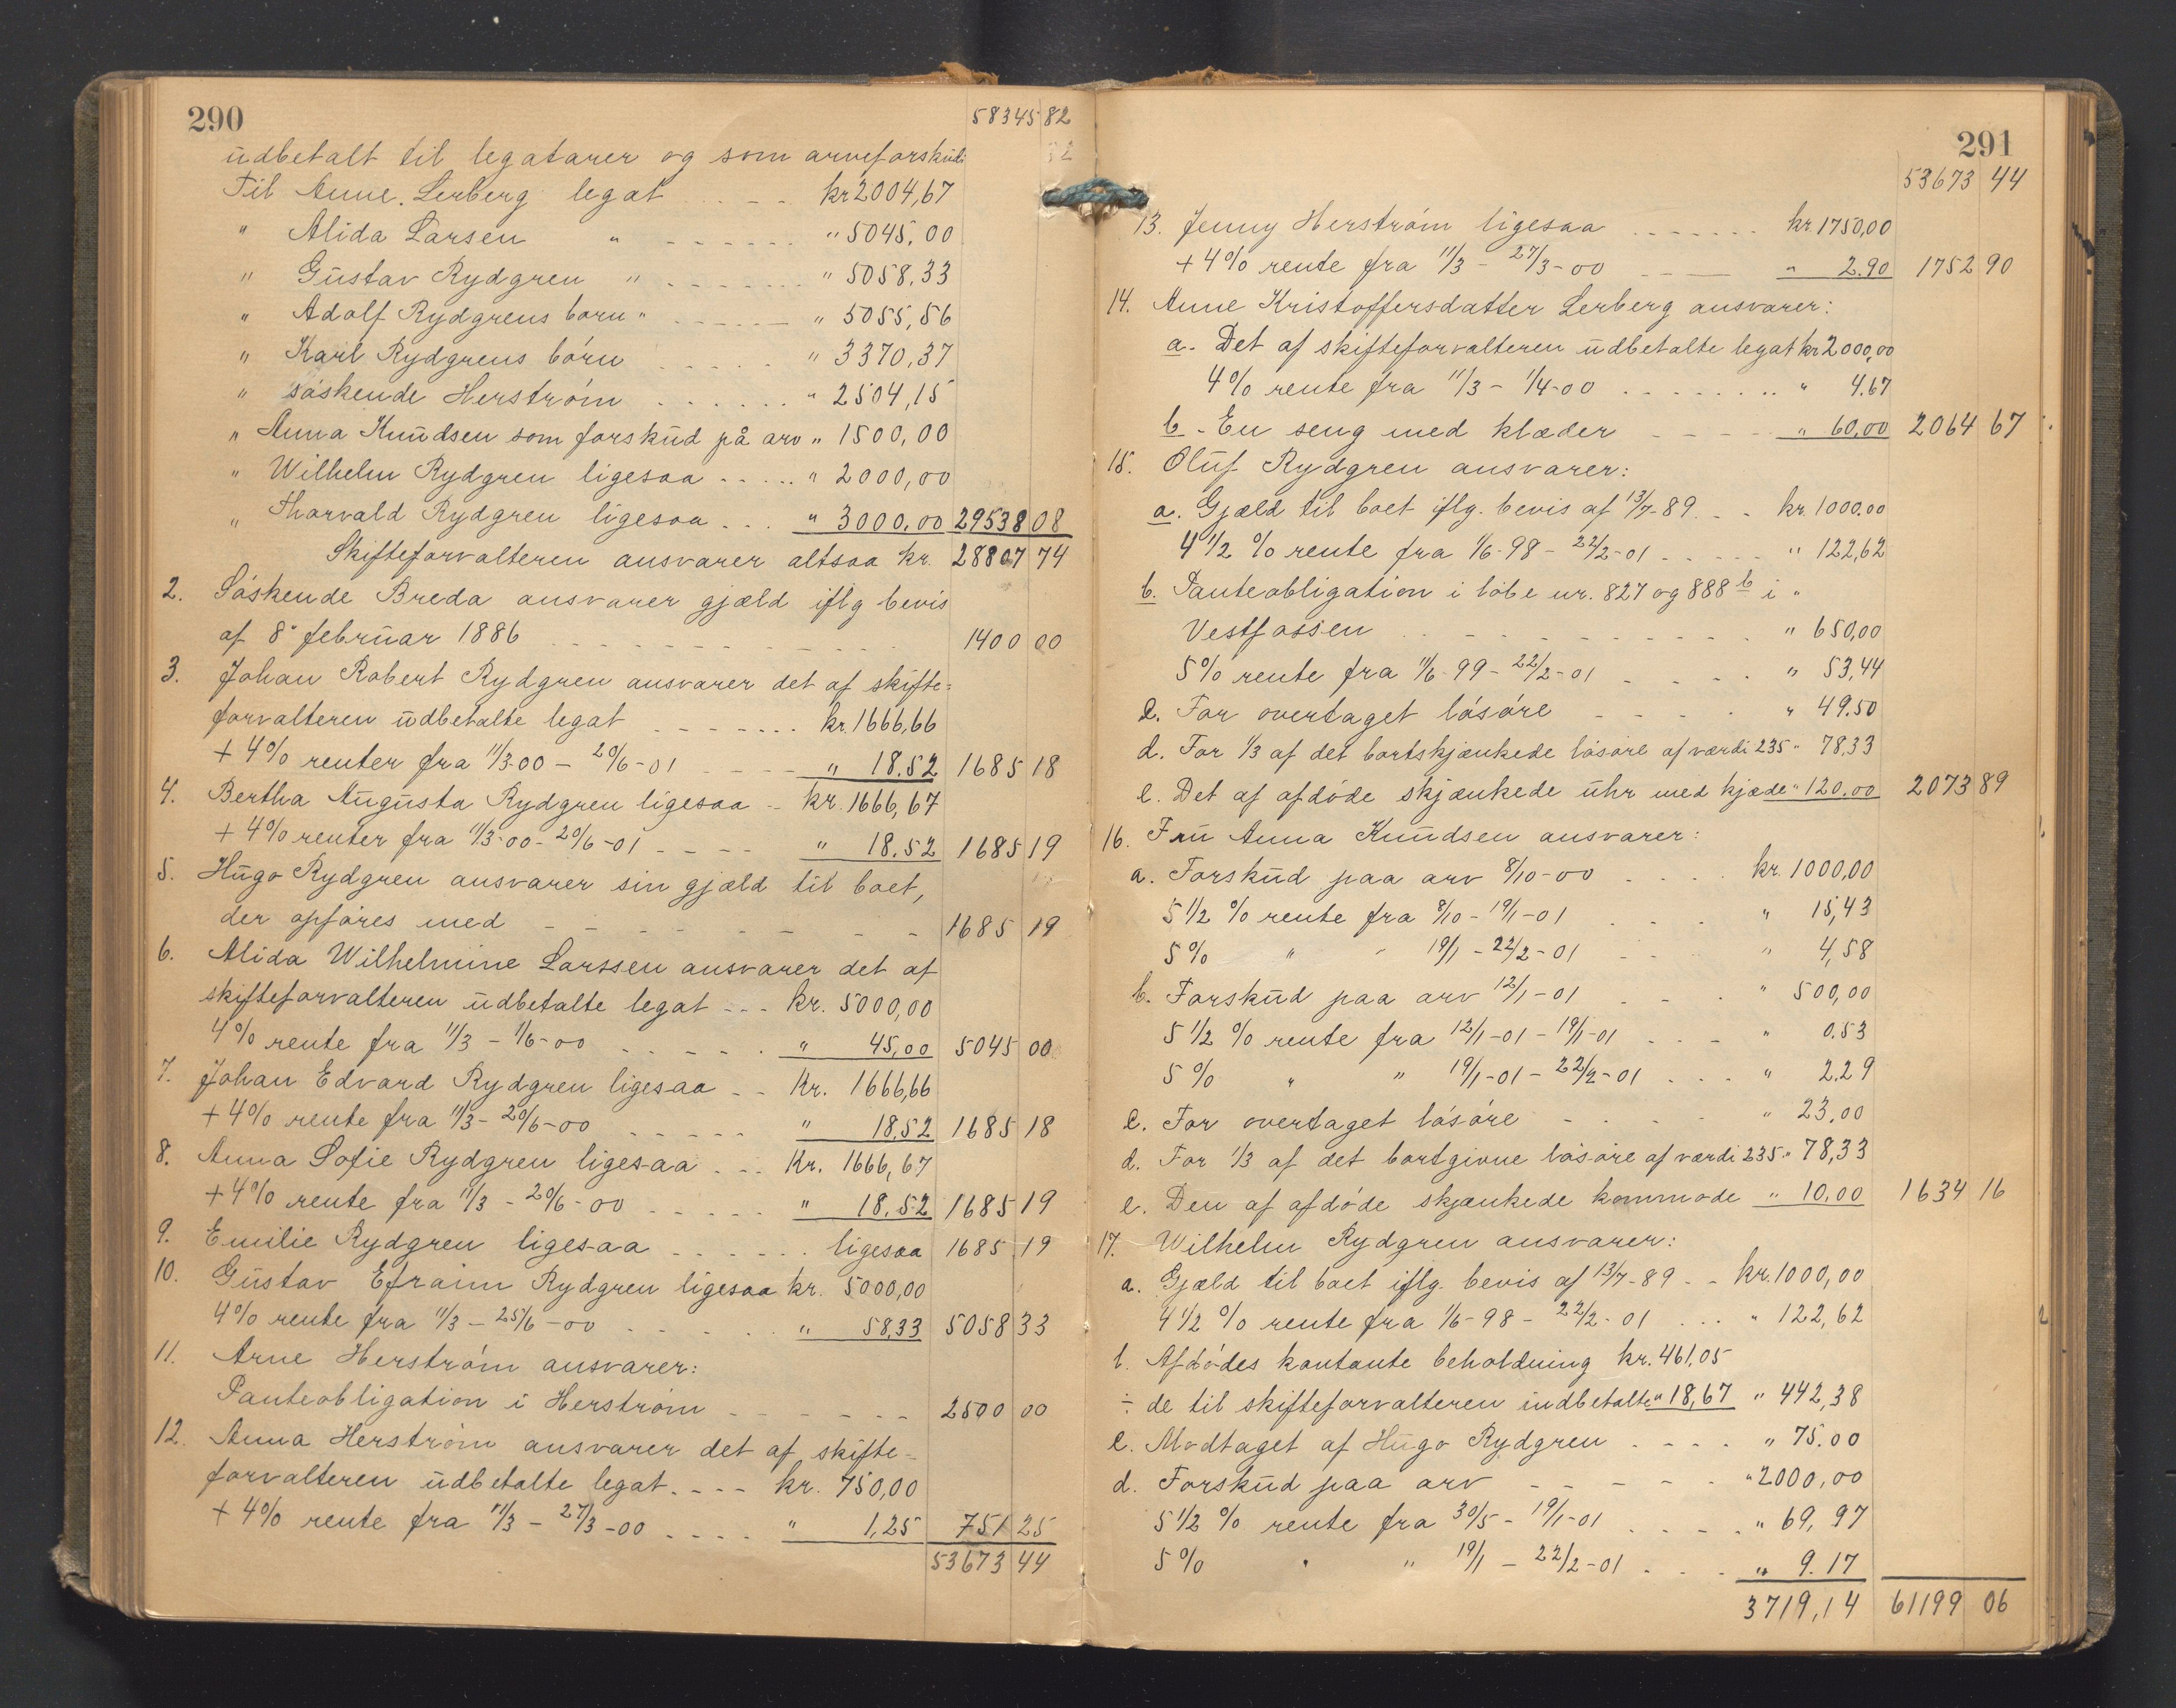 290
58345 82
udbetalt til legatarer og som arveforskud:
Til Anne. Lerberg legat . . - - kr 2004,67
" Alida Larsen " - - - - - - . " 5045,00
" Gustav Rydgren " - . . . . . . " 5058,33
" Adolf Rydgrens børn " - - - - - " 5055,56
" Karl Rydgrens børn . . . . . " 3370,37
" søskende Herstrøm . . . . . . " 2504,15
" Anna Knudsen som forskud på arv " 1500,00
" Wilhelm Rydgren ligesaa - - . . . " 2000,00
" Thorvald Rydgren ligesaa . . . " 3000,00 29538 08
Skifteforvalteren ansvarer altsaa kr. 28807 74
2. Søskende Breda ansvarer gjæld iflg bevis
af 8' februar 1886 - - - - - - - - - 1400 00
3. Johan Robert Rydgren ansvarer det af skifte=
forvalteren udbetalte legat - - - - - - . kr. 1666,66
+ 4% renter fra 11/3-00 - 20/6-01 - - - - " 18.52 1685 18
4. Bertha Augusta Rydgren ligesaa - kr. 1666,67
+ 4% renter fra 11/3-00 - 20/6-01 - - - - " 18.52 1685 19
5. Hugo Rydgren ansvarer sin gjæld til boet,
der opføres med - - - - - - - - 1685 19
6. Alida Wilhelmine Larssen ansvarer det af
skifteforvalteren udbetalte legat - - - kr. 5000,00
4% rente fra 11/3 - 1/6-00 - - - - - . " 45,00 5045 00
7. Johan Edvard Rydgren ligesaa - - Kr. 1666,66
+ 4% rente fra 11/3 - 20/6-00 - - - - - " 18,52 1685 18
8. Anna Sofie Rydgren ligesaa . - - Kr. 1666,67
+ 4% rente fra 11/3 - 20/6-00 - - - - - " 18,52 1685 19
9. Emilie Rydgren ligesaa - - - - - - . ligesaa 1685 19
10. Gustav Efraim Rydgren ligesaa kr. 5000,00
4% rente fra 11/3 - 25/6-00 - - - - - . " 58,33 5058 33
11. Arne Herstrøm ansvarer:
Panteobligation i Herstrøm - - - - - - 2500 00
12. Anna Herstrøm ansvarer det af skifte-
forvalteren udbetalte legat. - - - kr. 750,00
+ 4% rente fra 11/3 - 27/3-00 - - - - " 1,25 751 25
53673 44
291
53673 44
13. Jenny Herstrøm ligesaa - - - - - - - kr. 1750,00
+ 4% rente fra 11/3 - 27/3-00 - - - " 2.90 1752 90
14. Anne Kristoffersdatter Lerberg ansvarer:
a. Det af skifteforvalteren udbetalte legat kr 2000,00
4% rente fra 11/3 - 1/4-00 . . . . . . . . . " 4.67
b - En seng med klæder - - - - " 60,00 2064 67
15. Oluf Rydgren ansvarer:
a. Gjæld til boet iflg. bevis af 13/7-89 - - kr. 1000.00
4 1/2 % rente fra 1/6-98 - 22/2-01 - - - - - " 122,62
b. Panteobligation i løbe nr. 827 og 888 b i "
Vestfossen - - - - - - - - - - " 650,00
5% rente fra 11/6-99 - 22/2-01 - - - - " 53,44
c. For overtaget løsøre - - - - - " 49.50
d. For 1/3 af det bortskjænkede løsøre af værdi 235 " 78,33
e. Det af afdøde skjænkede uhr med kjæde " 120.00 2073 89
16. Fru Anna Knudsen ansvarer:
a. Forskud paa arv 8/10-00 . . . . kr. 1000,00
5 1/2 % rente fra 8/10 - 19/1-01 . . . " 15,43
5% " " 19/1 - 22/2-01 - - - " 4,58
b. Forskud paa arv 12/1-01 . - . . " 500,00
5 1/2 % rente fra 12/1-01 - 19/1-01 . - - " 0.53
5% " " 19/1-01 - 22/2-01 . . . " 2.29
c. For overtaget løsøre - - - - " 23.00
d. For 1/3 af det bortgivne løsøre af værdi 235 " 78,33
e. Den af afdøde skjænkede kommode " 10.00 1634 16
17. Wilhelm Rydgren ansvarer:
a. Gjæld til boet iflg. bevis af 13/7-89 - - kr. 1000,00
4 1/2 % rente fra 1/6-98 - 22/2-01 . . . " 122,62
b. Afdødes kontante beholdning kr. 461,05
÷ de til skifteforvalteren indbetalte " 18,67 " 442,38
c. Modtaget af Hugo Rydgren . - - - . " 75.00
d. Forskud paa arv - - - - - . " 2000,00
5 1/2 % rente fra 30/5 - 19/1-01 . . . - " 69,97
5% " " 19/1 - 22/2-01 . . . " 9.17
3719,14 61199 06